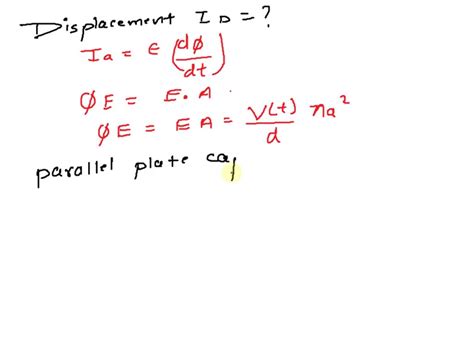 Displacement I D = ?
Ia = ε (dø/dt)
øE = E . A .
øE = EA = V(t)/d πa²
parallel plate cap